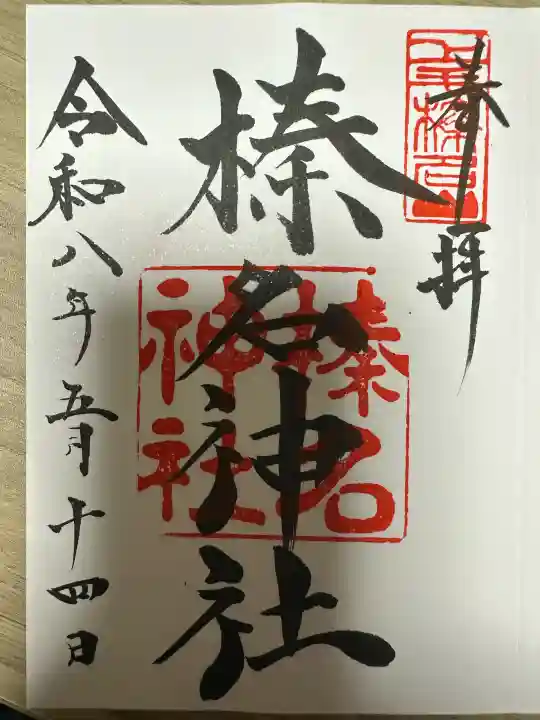 奉拝
榛名神社
榛名
神社
令和八年五月十四日